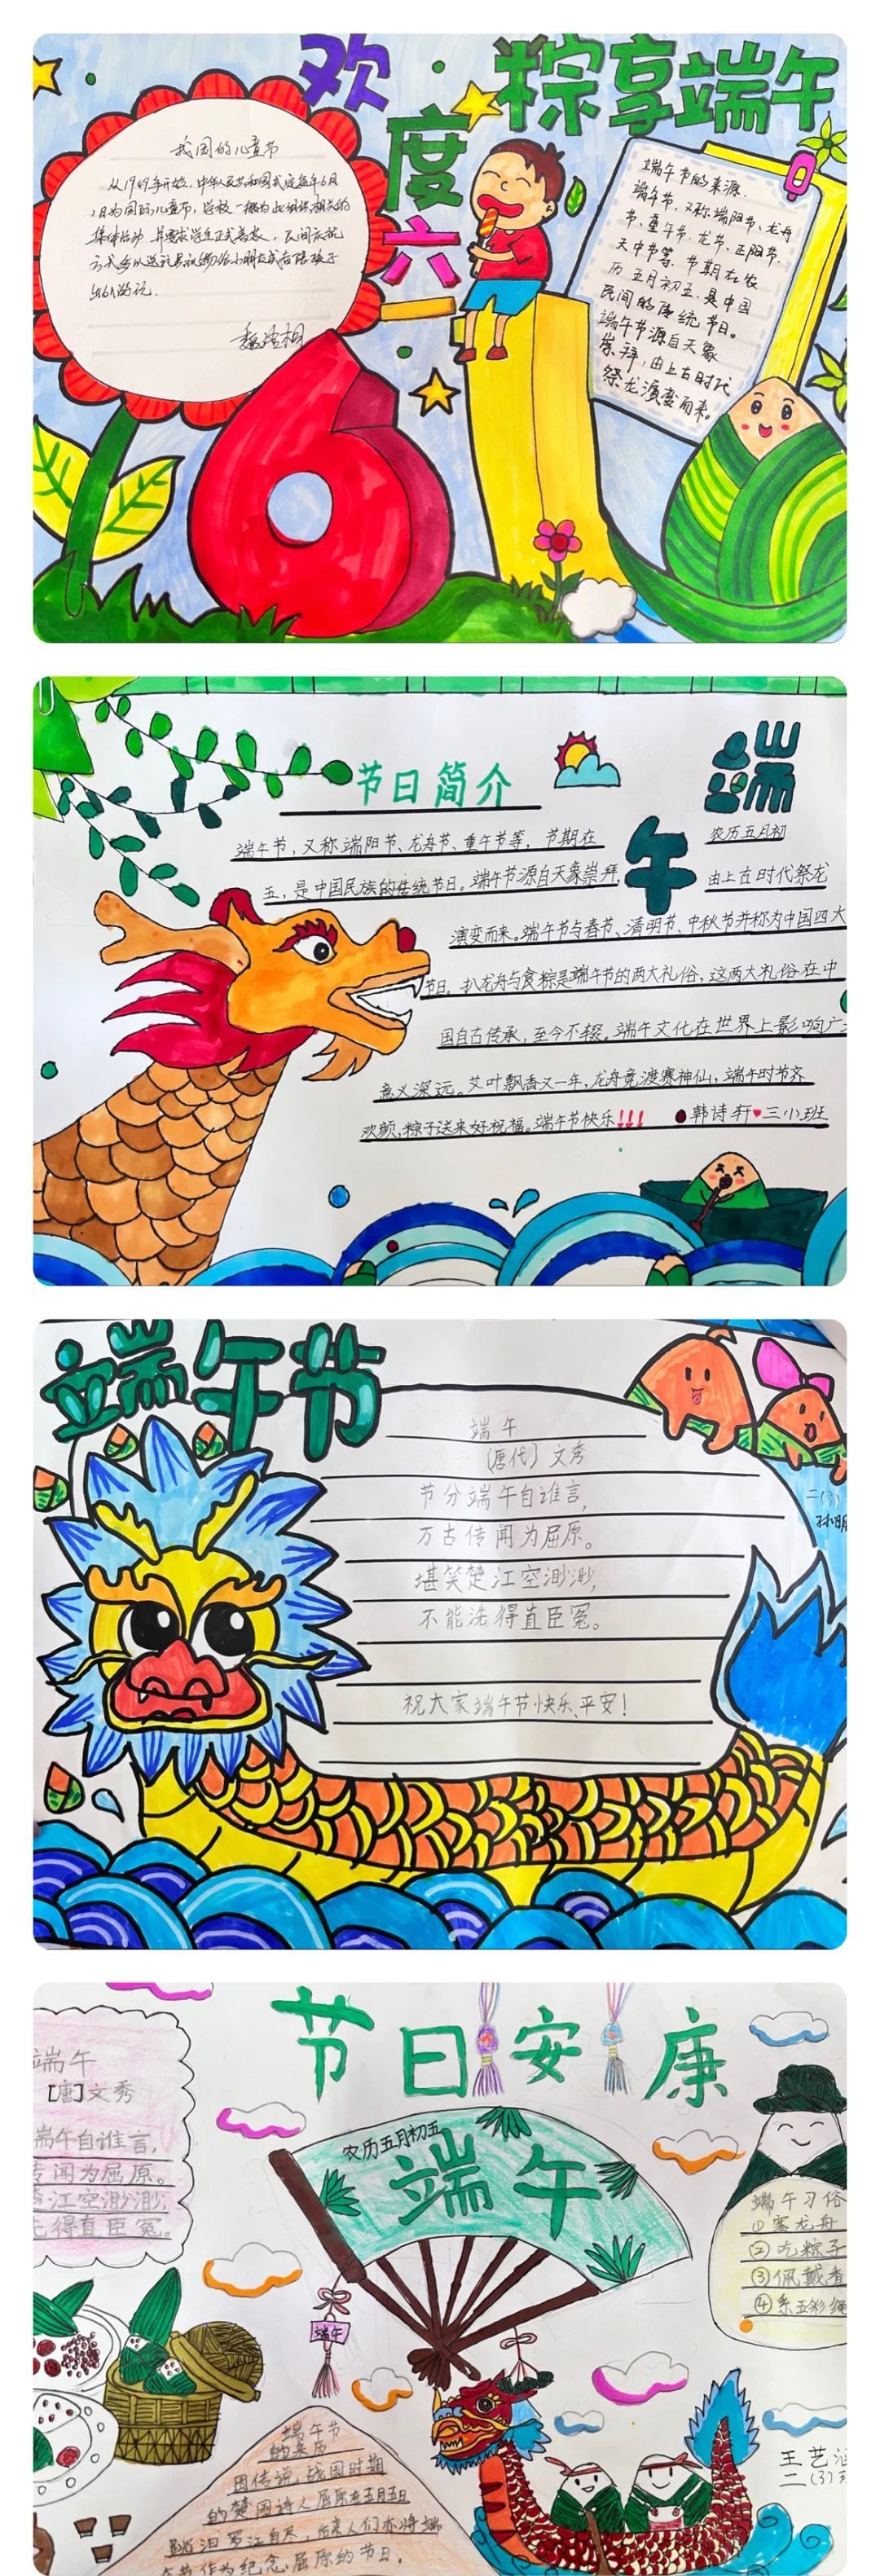 欢度六一
粽享端午
我国的儿童节
从1949年开始，中华人民共和国式定每年6月
1日为国际儿童节，学校一般为此组织相关的
集体活动
端午节的来源.
端午节,又称端阳节、龙舟
节、重午节、龙节、正阳节、
天中节等,节期在农
历五月初五.是中国
民间的传统节日。
端午节源自天象
崇拜,由上古时代
祭龙演变而来。
节日简介
端午
端午节,又称端阳节、龙舟节、重午节等,节期在
农历五月初
五,是中国民族的传统节日。端午节源自天象崇拜,
由上古时代祭龙
演变而来。端午节与春节、清明节、中秋节并称为中国四大
节日。扒龙舟与食粽是端午节的两大礼俗,这两大礼俗在中
国自古传承,至今不辍。端午文化在世界上影响广
意义深远。艾叶飘香又一年,龙舟竞渡赛神仙,端午时节齐
欢颜,粽子送来好祝福。端午节快乐!!!
韩诗轩♥三(1)班
端午节
端午
(唐代)文秀
节分端午自谁言,
万古传闻为屈原。
堪笑楚江空渺渺,
不能洗得直臣冤。
祝大家端午节快乐、平安!
节日安康
端午
[唐]文秀
端午自谁言,
传闻为屈原。
江空渺渺,
得直臣冤。
农历五月初五
端午
端午
端午习俗
①赛龙舟
②吃粽子
③佩戴香
④系五彩绳
端午节
的来历
因传说战国时期
的楚国诗人屈原在五月五日
跳汨罗江自尽,后来人们亦将端
午节作为纪念屈原的节日。
王艺涵
二(3)班